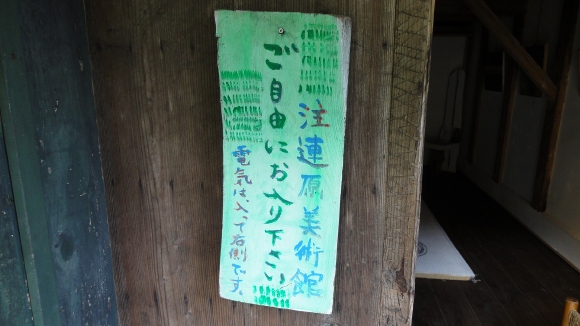 注連原美術館
ご自由にお入り下さい
電気は、入って右側です。